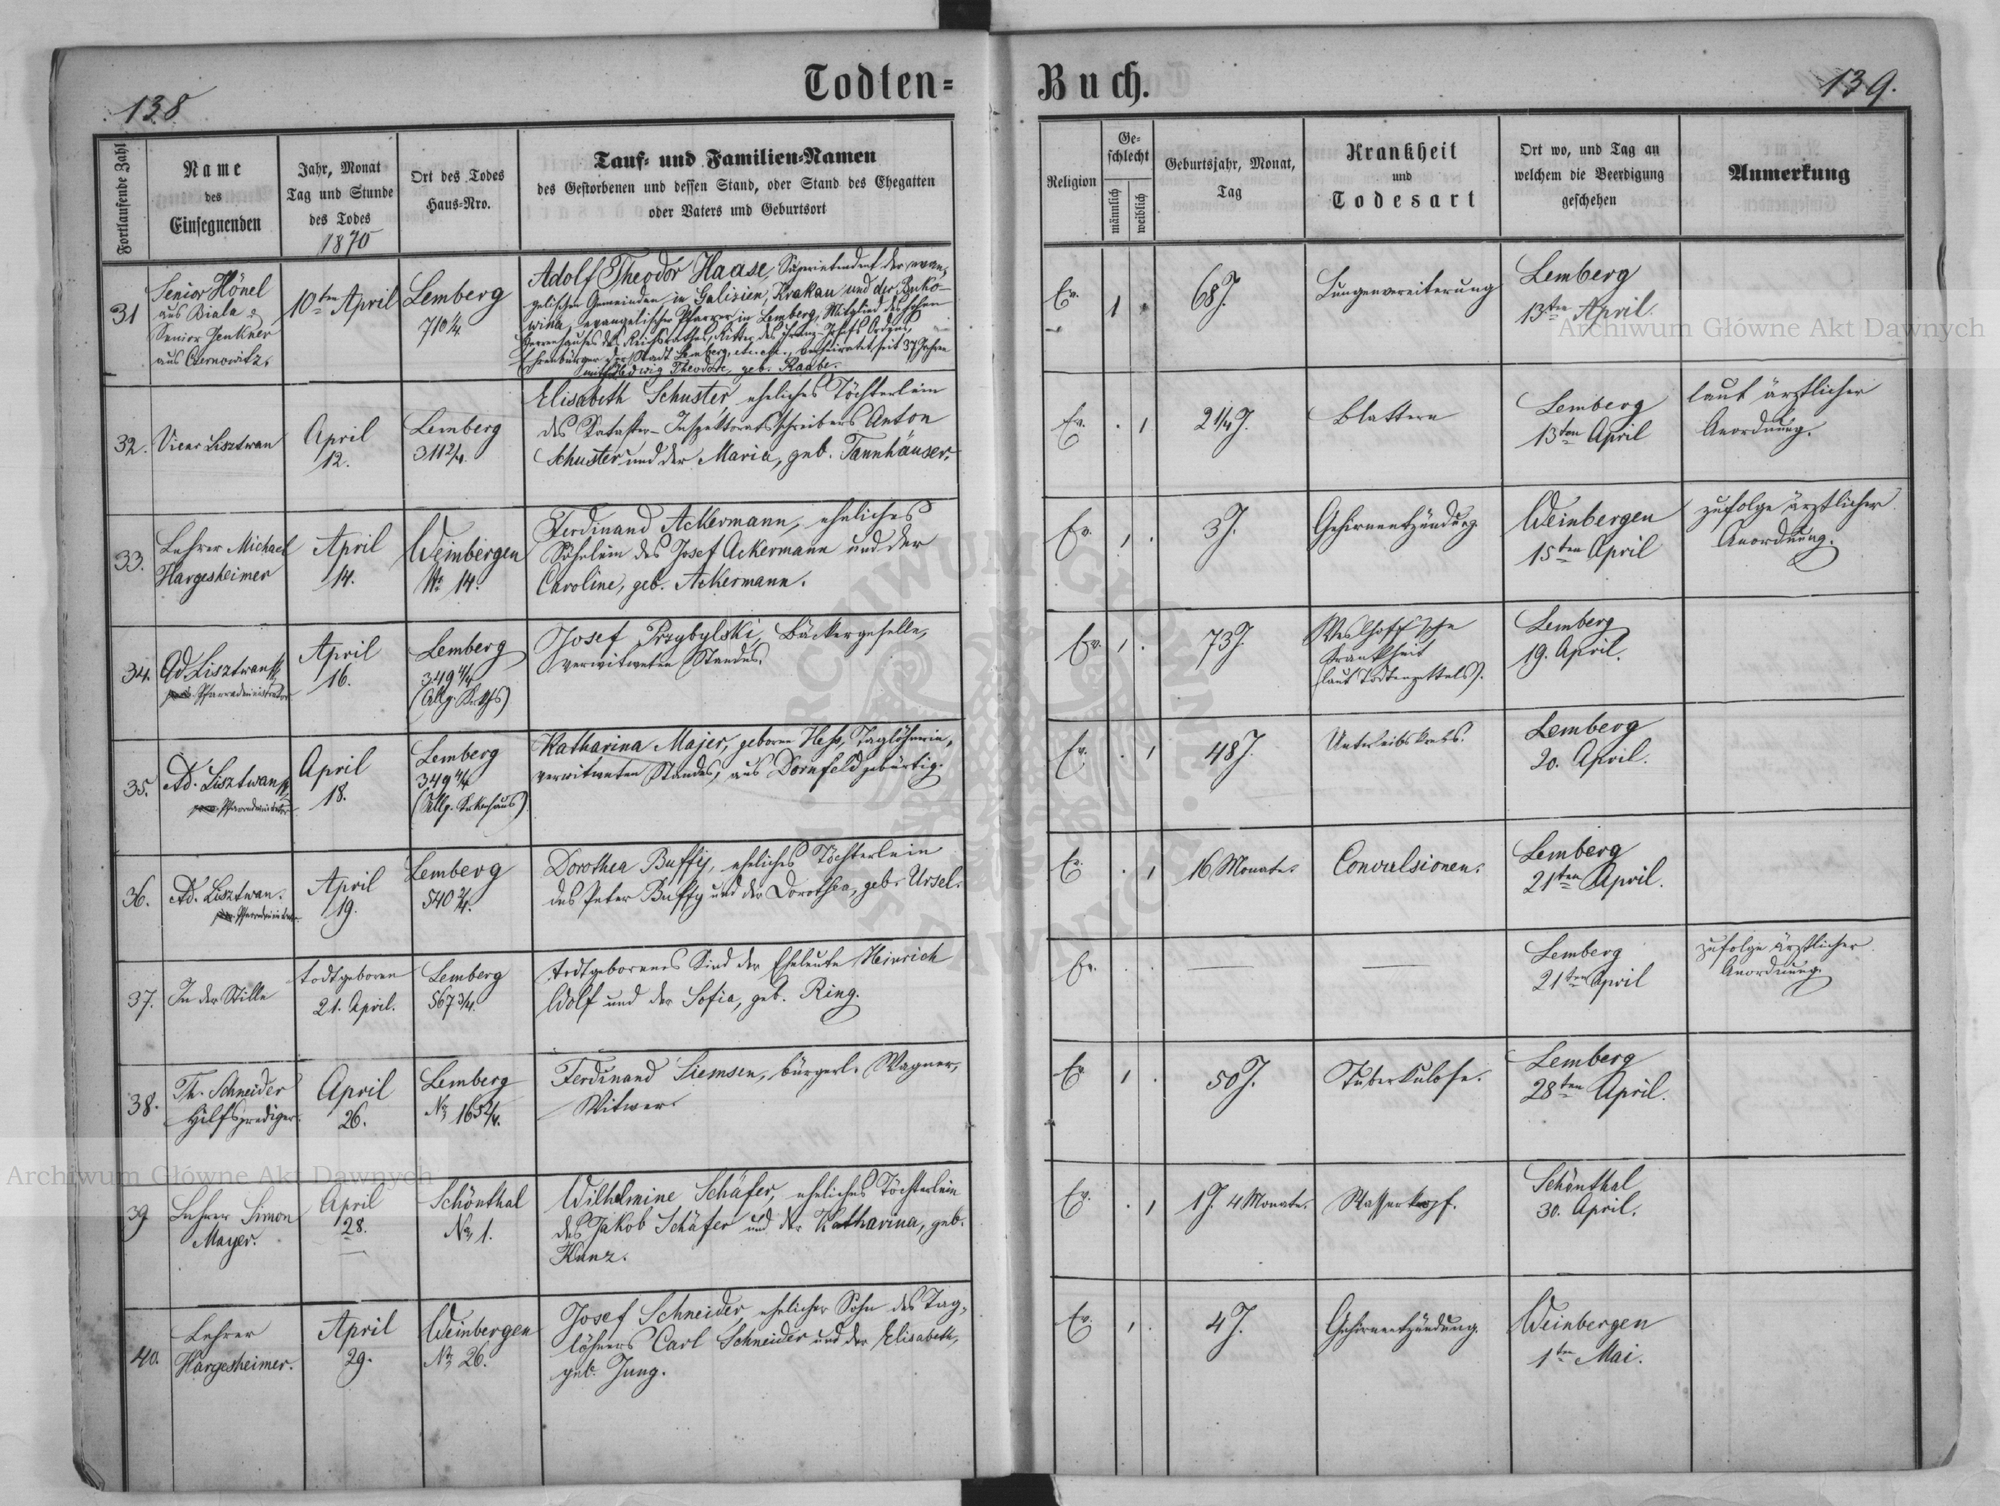 Todten-
Buch.
138
139.
Fortlaufende Zahl
Name
des
Einsegnenden
Jahr, Monat
Tag und Stunde
des Todes
1870
Ort des Todes
Haus-Nro.
Tauf- und Familien-Namen
des Gestorbenen und dessen Stand, oder Stand des Ehegatten
oder Vaters und Geburtsort
Religion
Ge-
schlecht
männlich
weiblich
Geburtsjahr, Monat,
Tag
Krankheit
und
Todesart
Ort wo, und Tag an
welchem die Beerdigung
geschehen
Anmerkung
31
Senior Hönel
aus Biala &
Senior Jenkner
aus Czernowitz.
10ten April
Lemberg
710 1/4
Adolf Theodor Haase, Superintendent der evan-
gelischen Gemeinden in Galizien, Krakau und der Buko-
wina, evangelischer Pfarrer in Lemberg, Mitglied des hohen
Herrenhauses des Reichsrathes, Ritter des Franz-Josefs Ordens,
Ehrenbürger der Stadt Lemberg, etc. etc., verheiratet seit 37 Jahren
mit Hedwig Theodore, geb. Raabe.
Ev.
1
68 J.
Lungenvereiterung
Lemberg
13ten April.
32.
Vicar Lisztwan
April
12.
Lemberg
311 2/4.
Elisabeth Schuster, eheliches Töchterlein
des Kataster-Inspektoratsschreibers Anton
Schuster und der Maria, geb. Tannhäuser.
Ev. . 1
2 1/4 J.
Blattern
Lemberg
13ten April
laut ärztlicher
Anordnung.
33.
Lehrer Michael
Hargesheimer
April
14.
Weinbergen
No 14.
Ferdinand Ackermann, eheliches
Söhnlein des Josef Ackermann und der
Caroline, geb. Ackermann.
Ev. 1 .
3 J.
Gehirnentzündung
Weinbergen
15ten April
zufolge ärztlicher
Anordnung.
34.
Ad. Lisztwan
Pfarradministrator
April
16.
Lemberg
349 4/4
Josef Przybylski, Bäckergeselle,
verwitweten Standes.
Ev. 1 .
73 J.
Krankheit
(laut Todtenzettels).
Lemberg
19. April.
35.
Ad. Lisztwan
Pfarradministrator
April
18.
Lemberg
349 4/4
Katharina Majer, geborne Heß, Taglöhnerin,
verwitweten Standes, aus Dornfeld gebürtig.
Ev. . 1
48 J.
Unterleibskrebs.
Lemberg
20. April.
36.
Ad. Lisztwan.
Pfarradministrator
April
19.
Lemberg
540 2/4.
Dorothea Buffy, eheliches Töchterlein
des Peter Buffy und der Dorothea, geb. Ursel.
Ev. . 1
16 Monate.
Convulsionen.
Lemberg
21ten April.
37.
In der Stille
todtgeboren
21. April.
Lemberg
567 3/4.
todtgeborenes Kind der Eheleute Heinrich
Wolf und der Sofia, geb. Ring.
Ev. . .
—
—
Lemberg
21ten April
zufolge ärztlicher
Anordnung.
38.
Th. Schneider
Hilfsprediger.
April
26.
Lemberg
No 165 2/4.
Ferdinand Siemsen, bürgerl. Wagner,
Witwer.
Ev. 1 .
50 J.
Tuberkulose.
Lemberg
28ten April.
39
Lehrer Simon
Mayer.
April
28.
Schönthal
No 1.
Wilhelmine Schäfer, eheliches Töchterlein
des Jakob Schäfer und der Katharina, geb.
Kunz.
Ev. . 1
1 J. 4 Monate.
Wasserkopf.
Schönthal
30. April.
40.
Lehrer
Hargesheimer.
April
29.
Weinbergen
No 26.
Josef Schneider, ehelicher Sohn des Tag-
löhners Carl Schneider und der Elisabeth,
geb. Jung.
Ev. 1 .
4 J.
Gehirnentzündung.
Weinbergen
1ten Mai.
Archiwum Główne Akt Dawnych
Archiwum Główne Akt Dawnych
ARCHIWUM GŁÓWNE AKT DAWNYCH